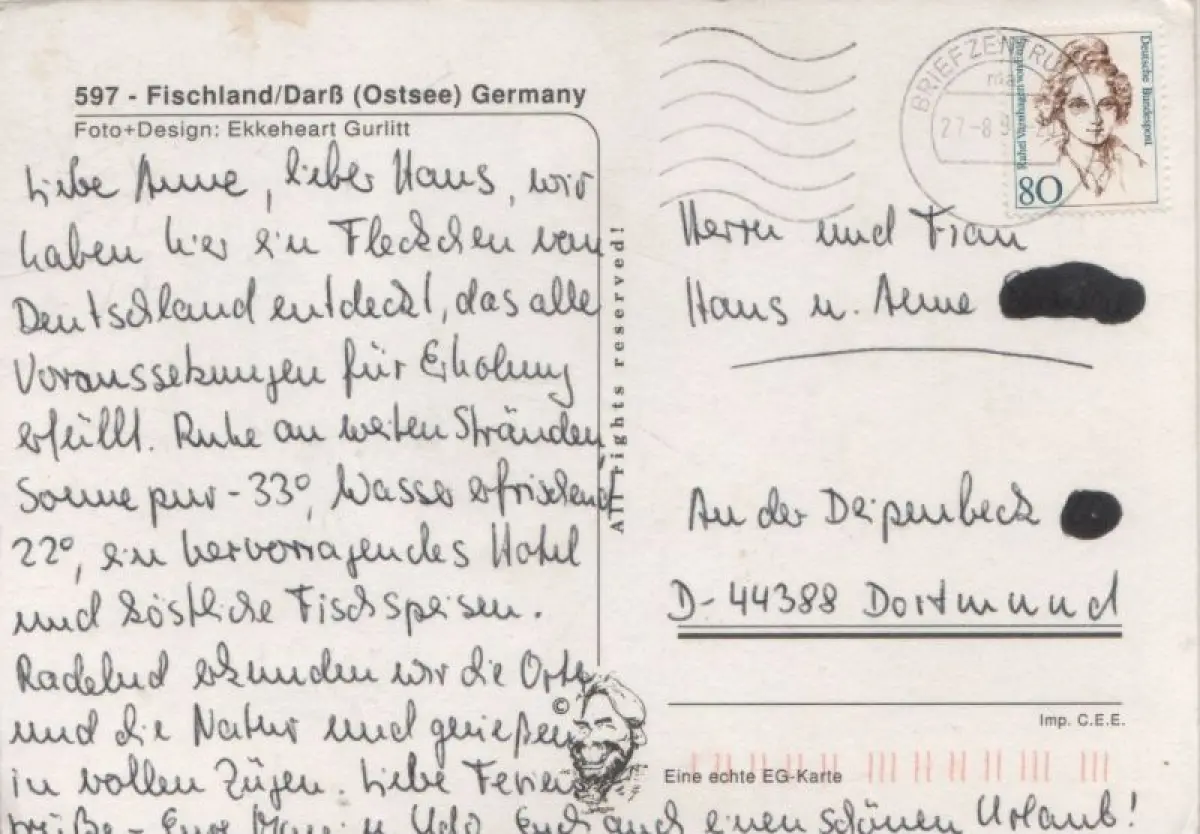 597 - Fischland/Darß (Ostsee) Germany
Foto+Design: Ekkeheart Gurlitt
Liebe Anne, lieber Hans, wir
haben hier ein Fleckchen von
Deutschland entdeckt, das alle
Voraussetzungen für Erholung
erfüllt. Ruhe an weiten Stränden
Sonne pur - 33°, Wasser erfrischend
22°, ein hervorragendes Hotel
und köstliche Fischspeisen.
Radelnd erkunden wir die Orte
und die Natur und genießen
in vollen Zügen. Liebe Ferien
grüße - Eure u. Udo. Euch auch einen schönen Urlaub!
All rights reserved!
©
BRIEFZENTRUM
27.-8.9
Deutsche Bundespost
Rahel Varnhagen von Ense
80
Herrn und Frau
Hans u. Anne
An der Deipenbeck
D-44388 Dortmund
Imp. C.E.E.
Eine echte EG-Karte